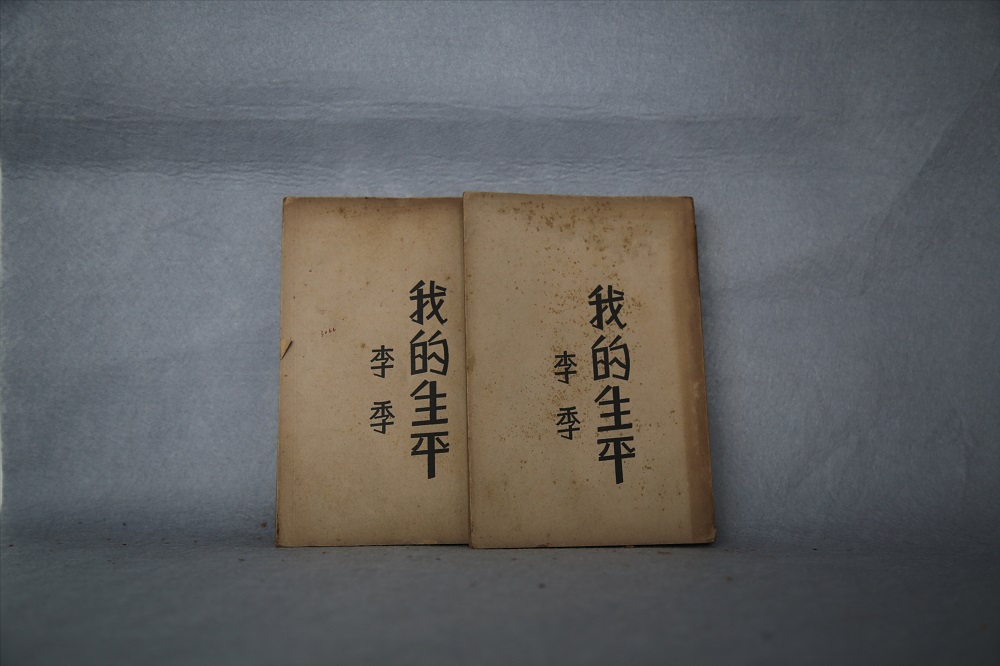 我的生平
李季
我的生平
李季